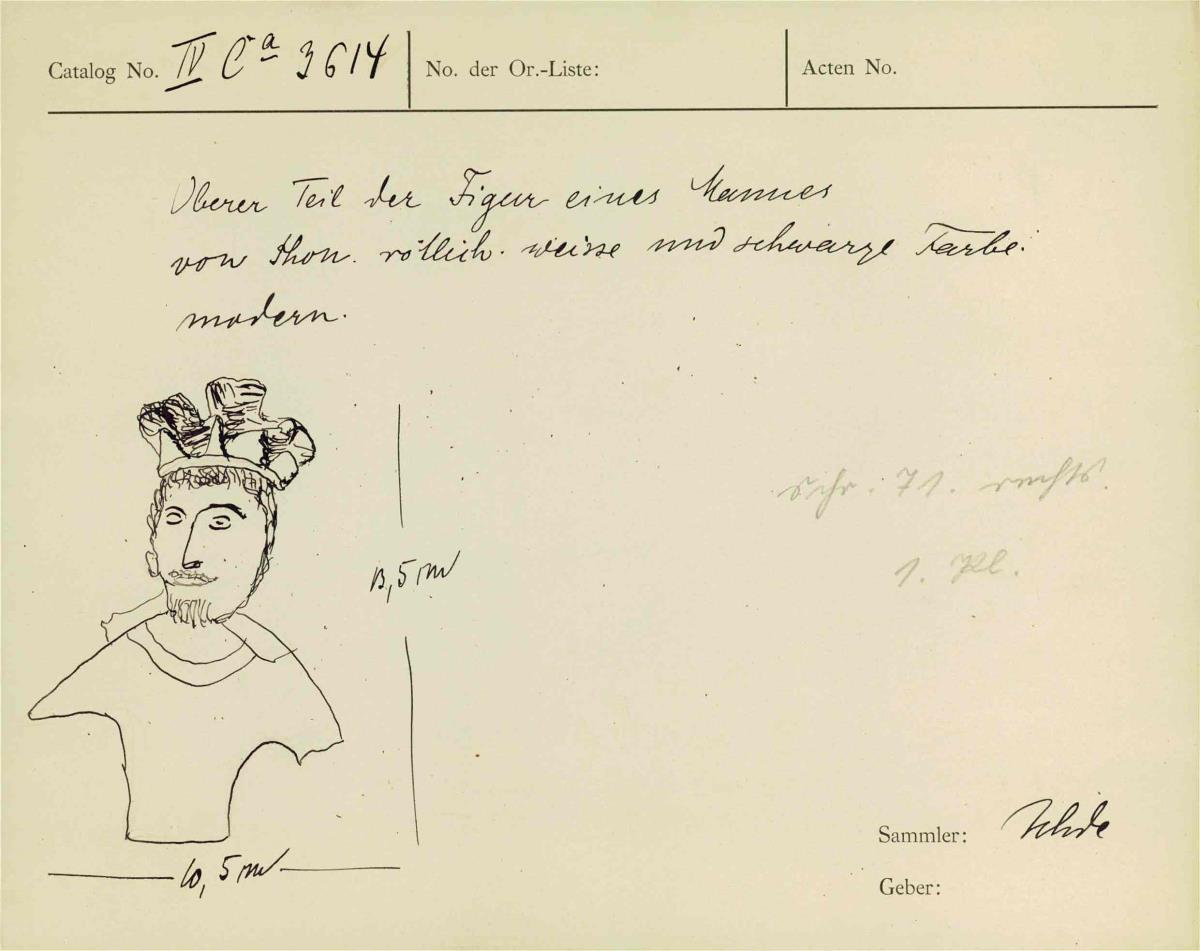 Catalog No. IV Ca 3614
No. der Or.-Liste:
Acten No.
Oberer Teil der Figur eines Mannes
von Thon. rötlich. weisse und schwarze Farbe.
modern.
13,5 cm
Schr. 71. rechts.
1. Kl.
10,5 cm
Sammler: Uhde
Geber: